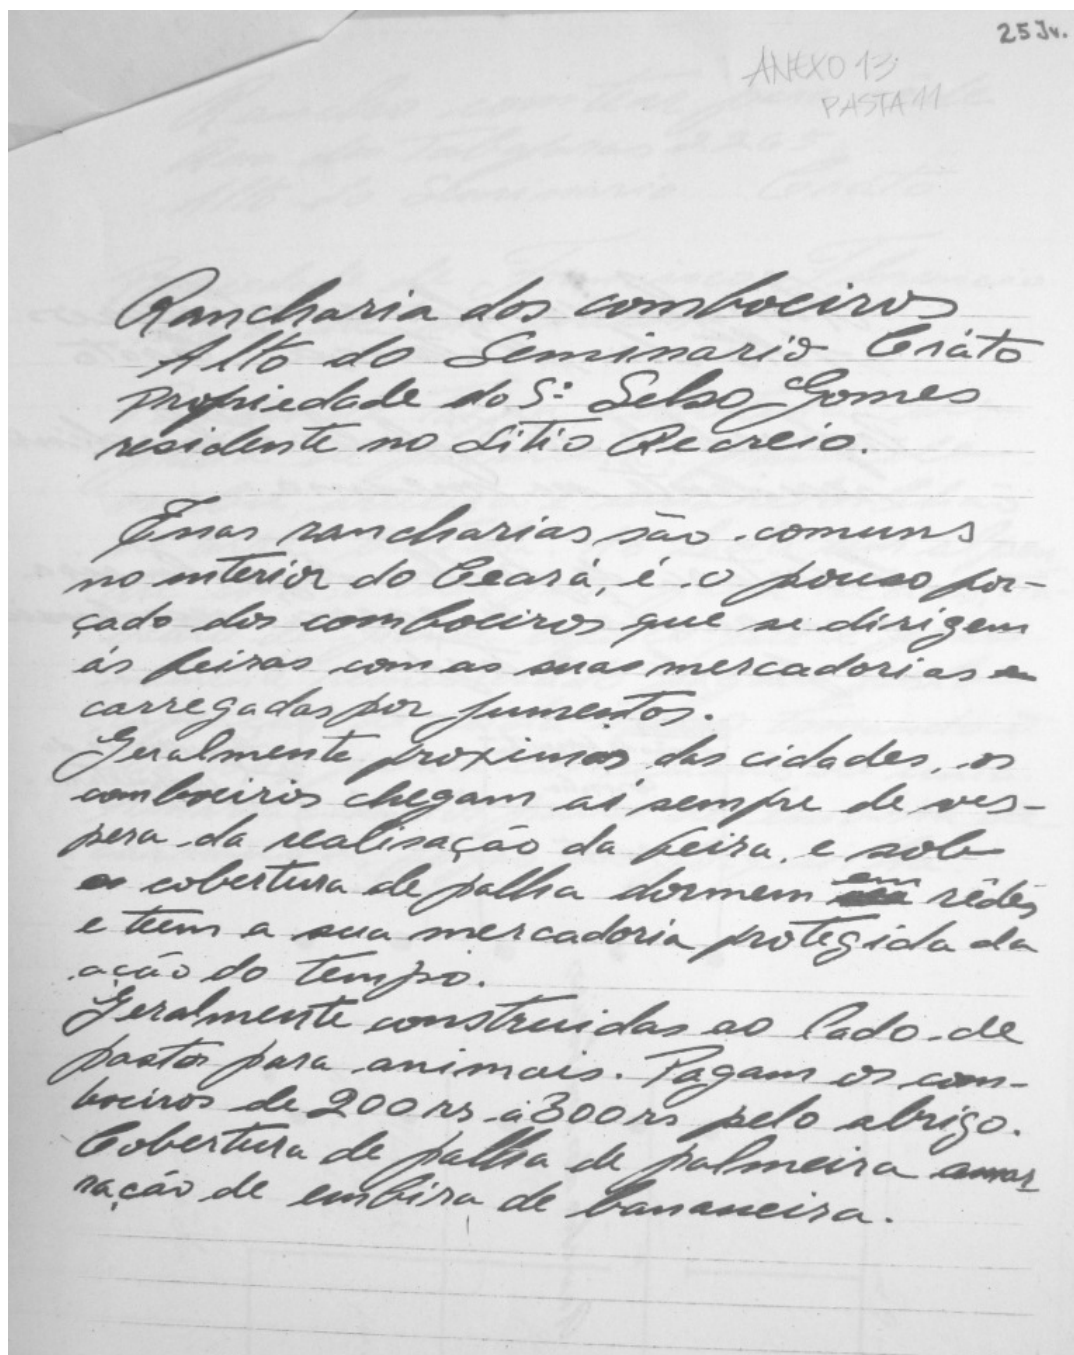 25 Jv.
ANEXO 13
PASTA 11
Rancharia dos comboeiros
Alto do Seminario Cráto
Propriedade do Sr. Selso Gomes
residente no Sitio Recreio.
Essas rancharias são comuns
no interior do Ceará, é o pouso for-
çado dos comboeiros que se dirigem
ás feiras com as suas mercadorias
carregadas por jumentos.
Geralmente proximas das cidades, os
comboeiros chegam ai sempre de ves-
pera da realisação da feira, e sob
a cobertura de palha dormem em rêdes
e teem a sua mercadoria protegida da
ação do tempo.
Geralmente construidas ao lado de
pastos para animais. Pagam os com-
boeiros de 200 rs á 300 rs pelo abrigo.
Cobertura de palha de palmeira amar-
ração de embira de bananeira.